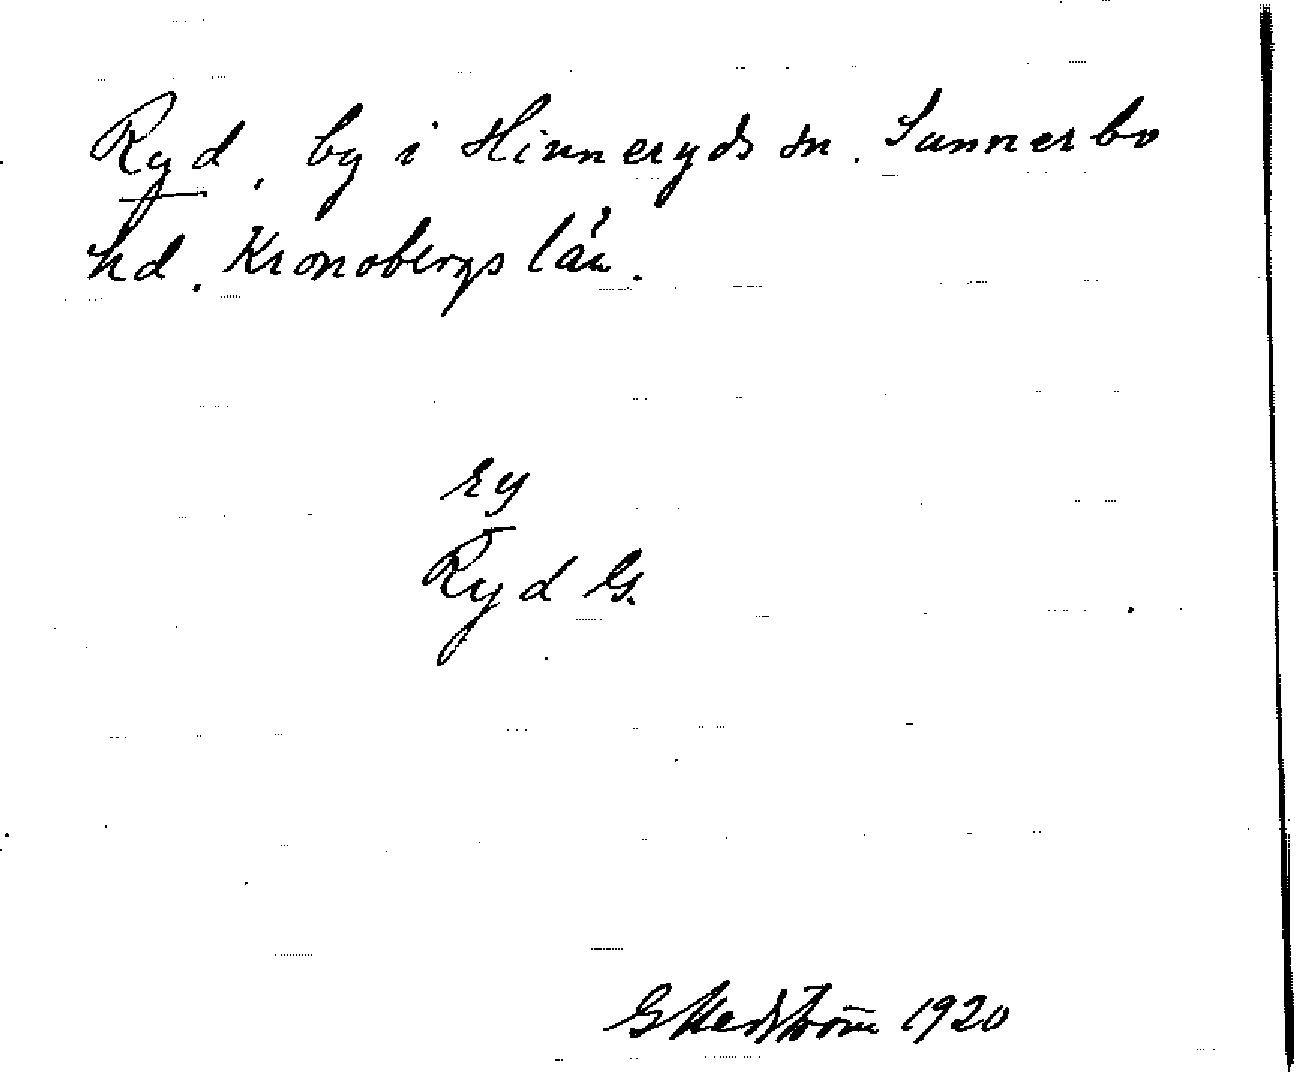 Ryd, by i Hinneryds sn. Sunnerbo
hd. Kronobergs län.
ry
Ryd G.
G Hedström 1920